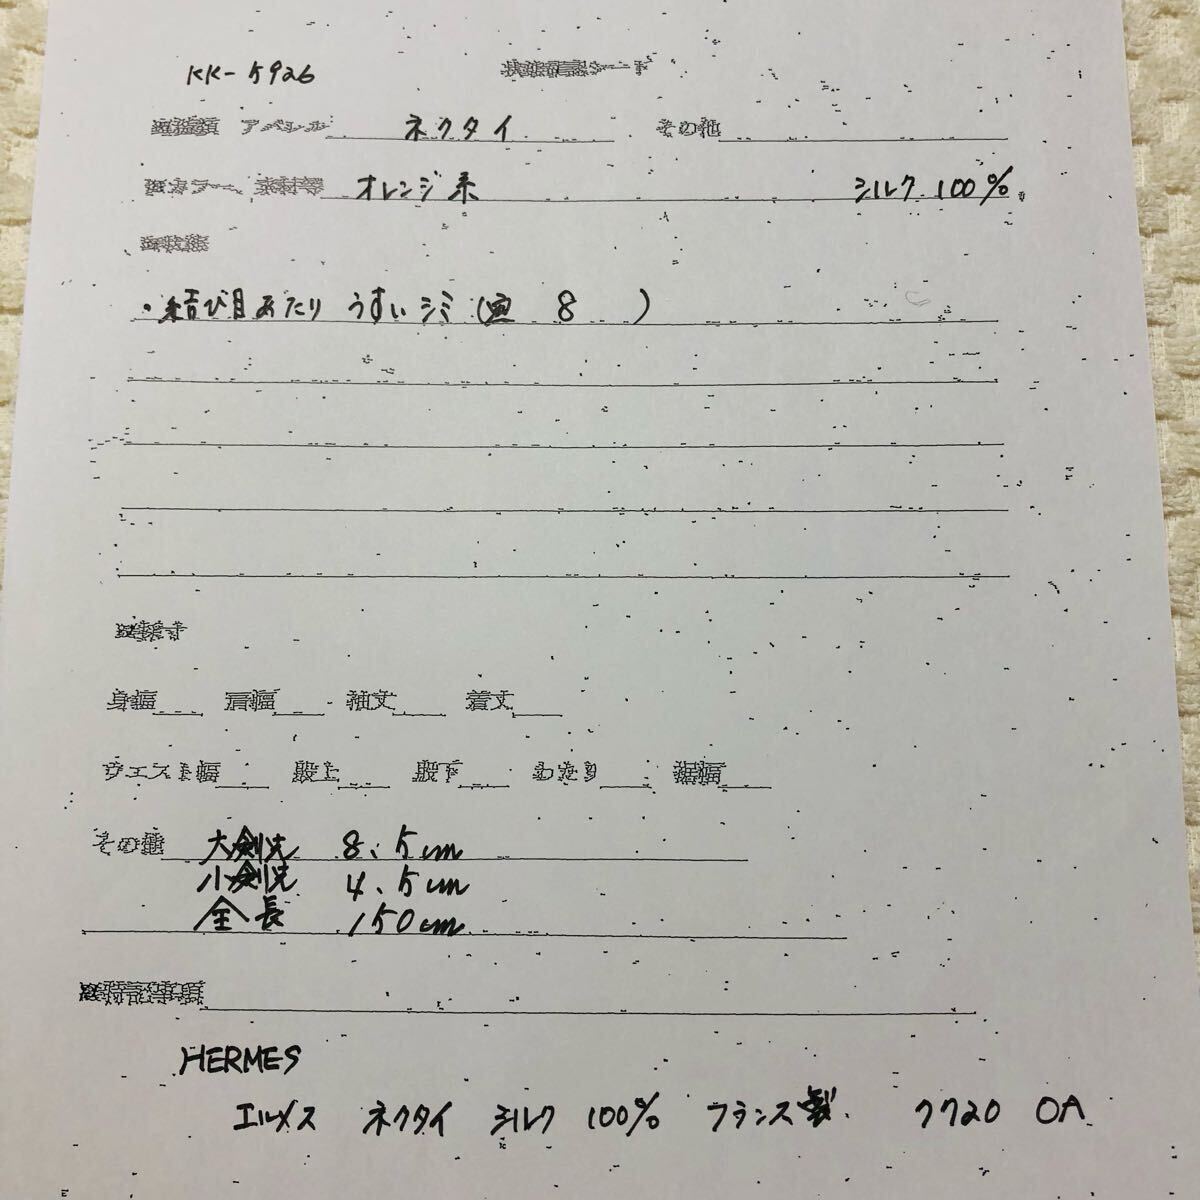 KK-5926 状態確認シート
アパレル ネクタイ その他
カラー、素材等 オレンジ系 シルク 100%
状態
・結び目あたり うすいシミ (画 8 )
採寸
身幅 肩幅 袖丈 着丈
ウエスト幅 股上 股下 わたり 裾幅
その他 大剣先 8.5cm
小剣先 4.5cm
全長 150cm
特記事項
HERMES
エルメス ネクタイ シルク 100% フランス製 7720 OA